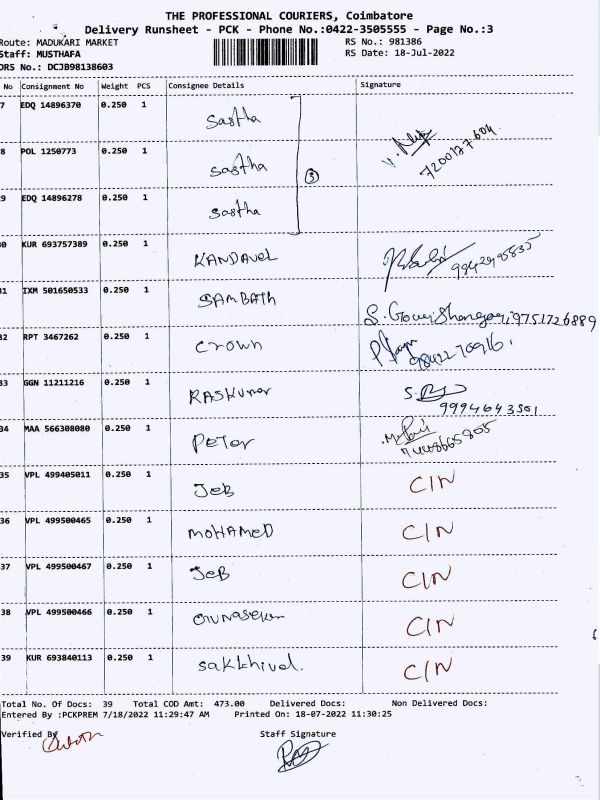 THE PROFESSIONAL COURIERS, Coimbatore
Delivery Runsheet - PCK - Phone No.:0422-3505555 - Page No.:3
Route: MADUKARI MARKET RS No.: 981386
Staff: MUSTHAFA RS Date: 18-Jul-2022
DRS No.: DCJB98138603
No Consignment No Weight PCS Consignee Details Signature
7 EDQ 14896370 0.250 1 Sastha
8 POL 1250773 0.250 1 sastha 7200177604
3
9 EDQ 14896278 0.250 1 sastha
0 KUR 693757389 0.250 1 KANDAVEL 9942995835
1 IXM 501650533 0.250 1 SAMBATH 9751726889
2 RPT 3467262 0.250 1 Crown
3 GGN 11211216 0.250 1 9994643501
4 MAA 566308080 0.250 1 PETER
35 VPL 499405011 0.250 1 JEB C/N
36 VPL 499500465 0.250 1 MOHAMED C/N
37 VPL 499500467 0.250 1 JEB C/N
38 VPL 499500466 0.250 1 C/N
39 KUR 693840113 0.250 1 sakkhivel. C/N
Total No. Of Docs: 39 Total COD Amt: 473.00 Delivered Docs: Non Delivered Docs:
Entered By :PCKPREM 7/18/2022 11:29:47 AM Printed On: 18-07-2022 11:30:25
Verified By Staff Signature